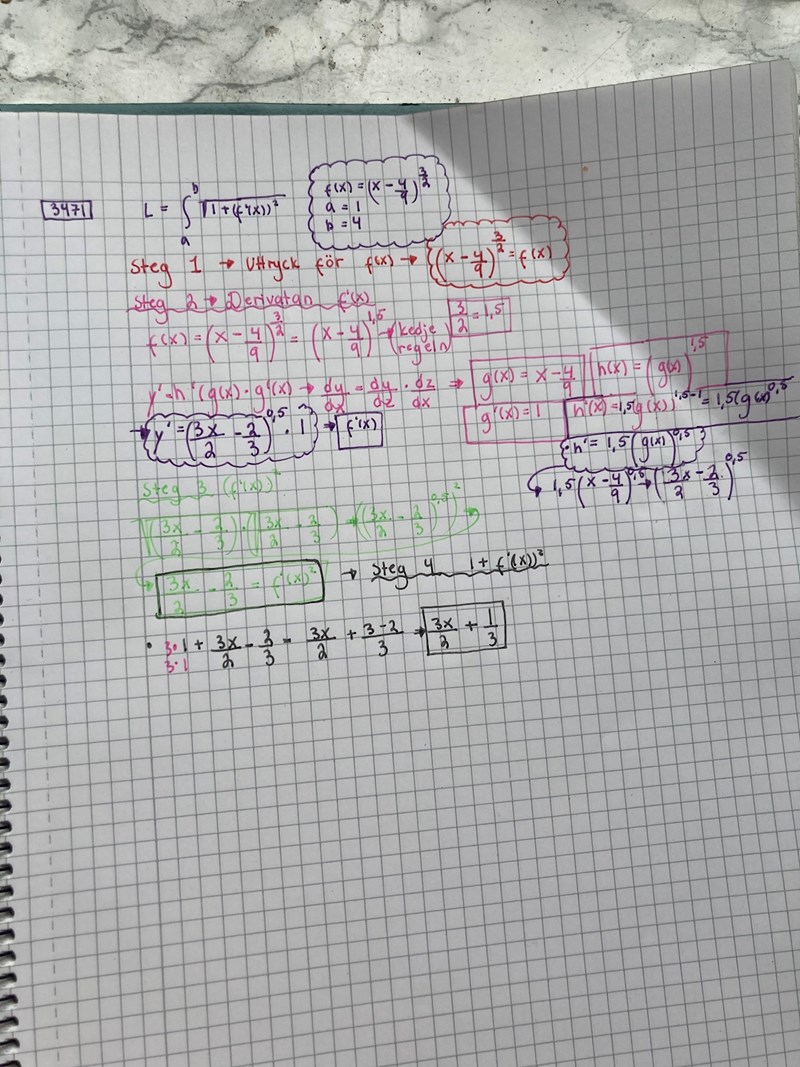 3471
L = ∫ₐᵇ √1+(f'(x))²
f(x) = (x - 4/9)^(3/2)
a = 1
b = 4
Steg 1 → Uttryck för f(x) → (x - 4/9)^(3/2) = f(x)
Steg 2 → Derivatan f'(x)
f(x) = (x - 4/9)^(3/2) = (x - 4/9)^1,5 → (kedje regeln)
3/2 = 1,5
y' = h'(g(x) · g'(x) → dy/dx = dy/dz · dz/dx ⇒ g(x) = x - 4/9
h(x) = (g(x))^1,5
g'(x) = 1
h'(x) = 1,5(g(x))^1,5-1 = 1,5(g(x))^0,5
→ y' = (3x/2 - 2/3)^0,5 · 1 → f'(x)
· h' = 1,5(g(x))^0,5
1,5(x - 4/9)^0,5 → (3x/2 - 2/3)^0,5
Steg 3 (f'(x))²
√(3x/2 - 2/3) · (√3x/2 - 2/3) → ((3x/2 - 2/3)^0,5)²
→ 3x/2 - 2/3 = f'(x)²
→ Steg 4 1 + f'(x))²
· 3·1/3·1 + 3x/2 - 2/3 = 3x/2 + 3-2/3 → 3x/2 + 1/3